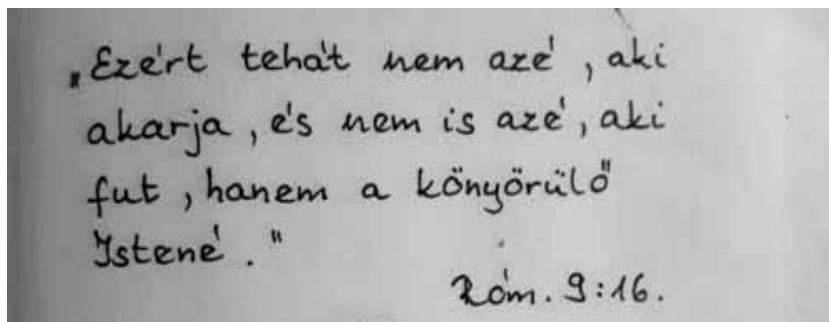 „Ezért tehát nem azé, aki
akarja, és nem is azé, aki
fut, hanem a könyörülő
Istené."
Róm. 9:16.